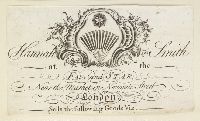 Hannah Smith
at the
Fan and Star
Near the Market in Street
London
Sells the following Goods Viz.